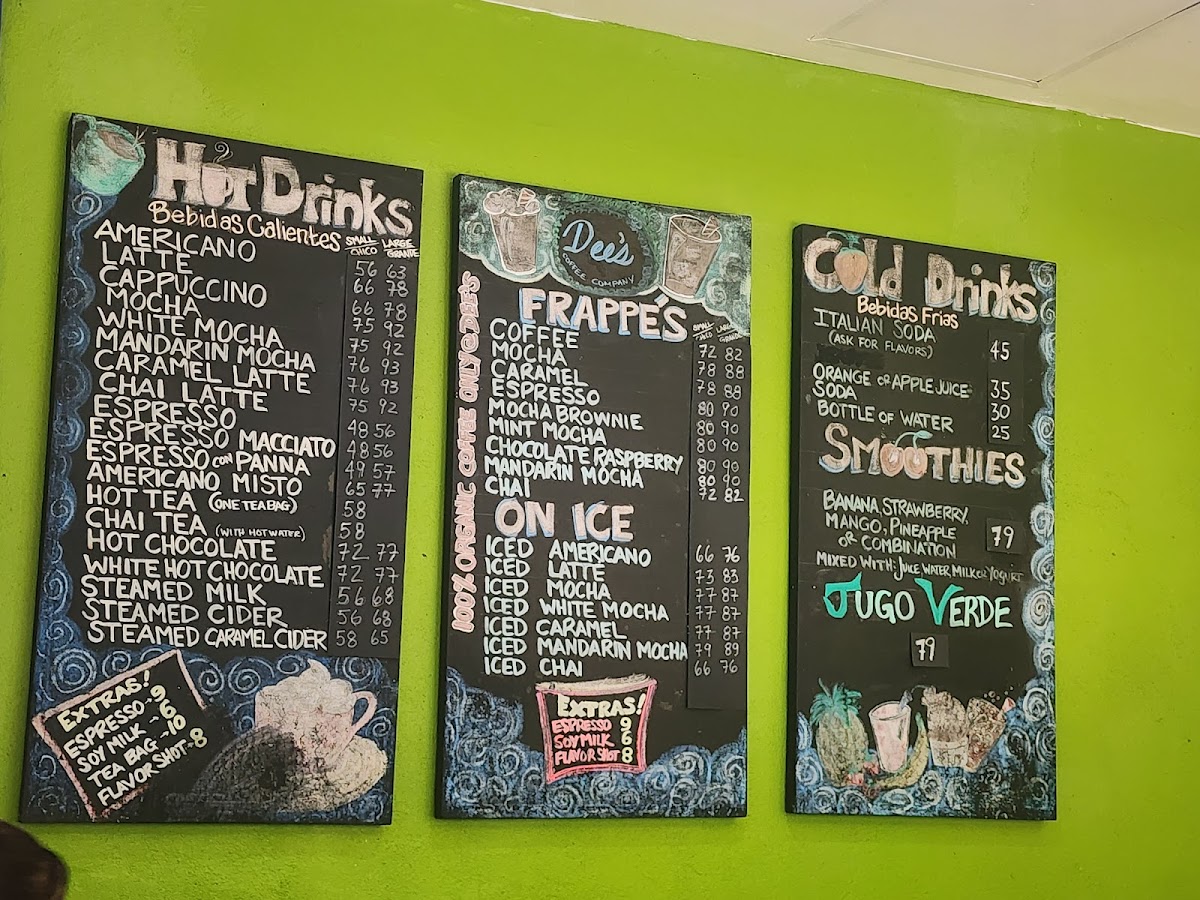 Hot Drinks
Bebidas Calientes
SMALL CHICO LARGE GRANDE
AMERICANO 56 63
LATTE 66 78
CAPPUCCINO 66 78
MOCHA 75 92
WHITE MOCHA 75 92
MANDARIN MOCHA 76 93
CARAMEL LATTE 76 93
CHAI LATTE 75 92
ESPRESSO 48 56
ESPRESSO MACCIATO 48 56
ESPRESSO CON PANNA 49 57
AMERICANO MISTO 65 77
HOT TEA (ONE TEA BAG) 58
CHAI TEA (WITH HOT WATER) 58
HOT CHOCOLATE 72 77
WHITE HOT CHOCOLATE 72 77
STEAMED MILK 56 68
STEAMED CIDER 56 68
STEAMED CARAMEL CIDER 58 65
EXTRAS!
ESPRESSO - 9
SOY MILK - 6
TEA BAG - 19
FLAVOR SHOT - 8
Dee's
COFFEE COMPANY
100% ORGANIC COFFEE ONLY @ DEE'S
FRAPPÉ'S
SMALL CHICO LARGE GRANDE
COFFEE 72 82
MOCHA 78 88
CARAMEL 78 88
ESPRESSO 80 90
MOCHA BROWNIE 80 90
MINT MOCHA 80 90
CHOCOLATE RASPBERRY 80 90
MANDARIN MOCHA 80 90
CHAI 72 82
ON ICE
ICED AMERICANO 66 76
ICED LATTE 73 83
ICED MOCHA 77 87
ICED WHITE MOCHA 77 87
ICED CARAMEL 77 87
ICED MANDARIN MOCHA 79 89
ICED CHAI 66 76
EXTRAS!
ESPRESSO 9
SOY MILK 6
FLAVOR SHOT 8
Cold Drinks
Bebidas Frias
ITALIAN SODA 45
(ASK FOR FLAVORS)
ORANGE OR APPLE JUICE 35
SODA 30
BOTTLE OF WATER 25
SMOOTHIES
BANANA, STRAWBERRY,
MANGO, PINEAPPLE 79
OR COMBINATION
MIXED WITH: JUICE WATER, MILK OR YOGURT
JUGO VERDE
79